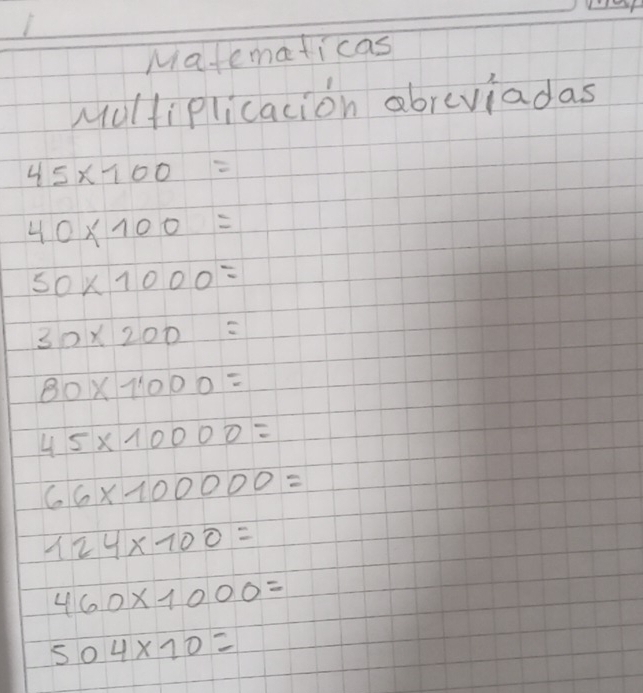 Matematicas
Multiplicación abreviadas
45x100 =
40x100 =
50x1000=
30x200 =
80x1000=
45x10000=
66x100000=
124x100=
460x1000=
504x10=